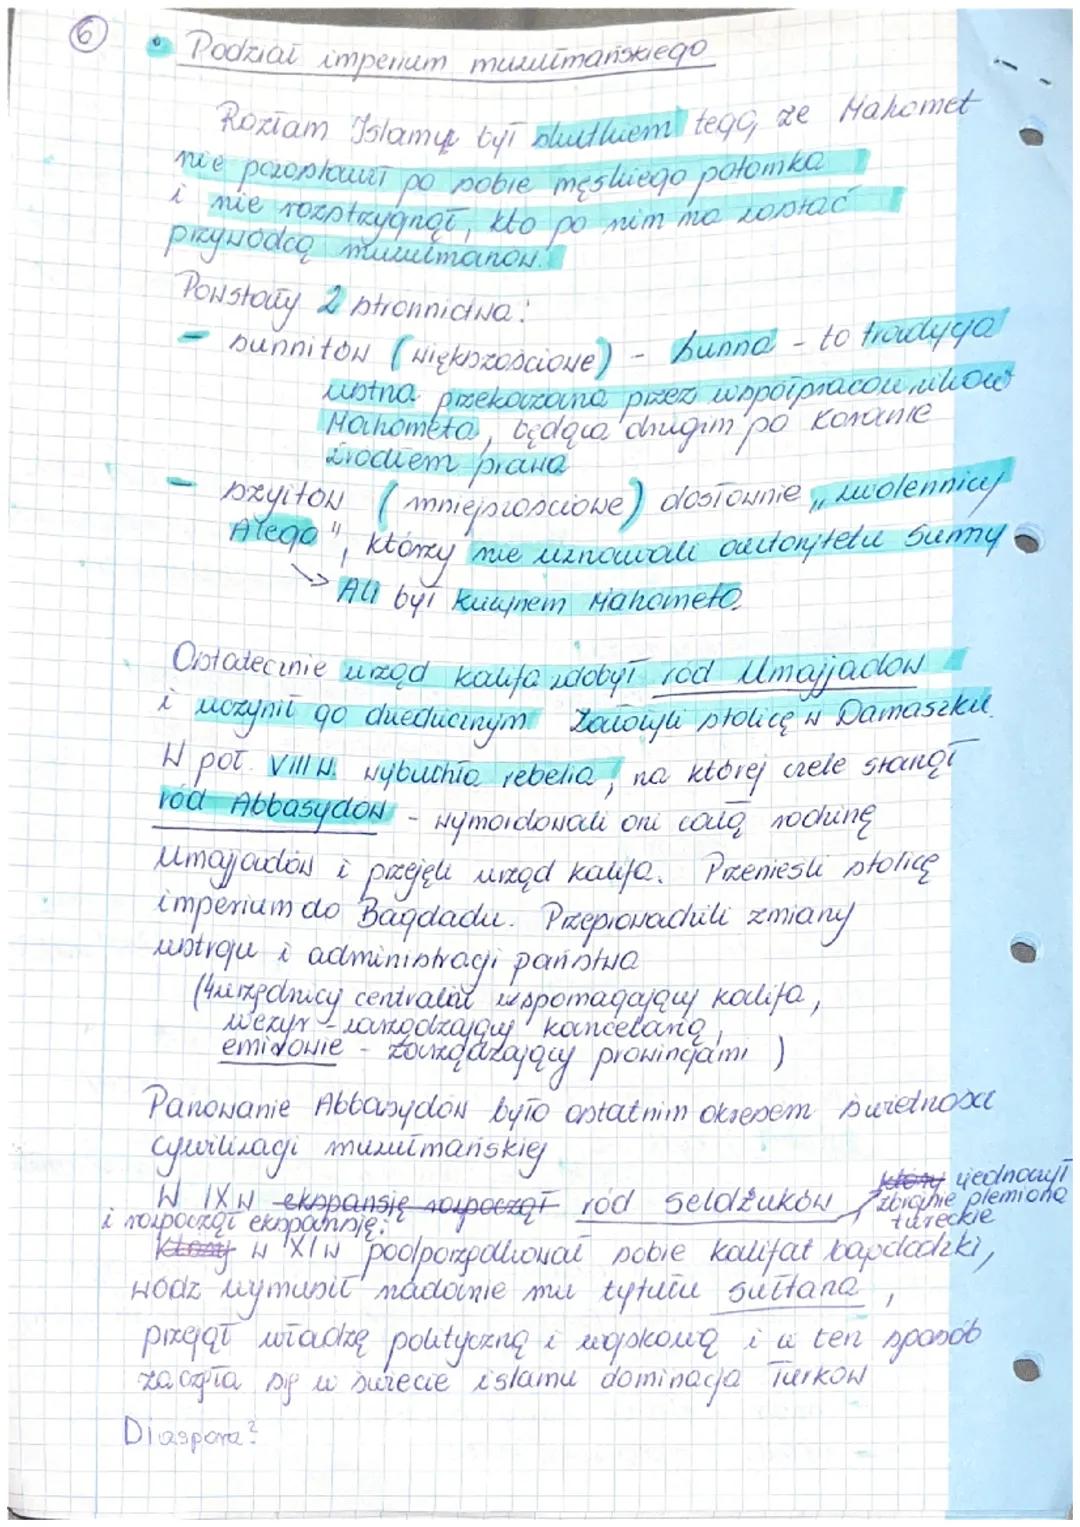 6
• Podział imperium muzułmańskiego
Rozłam Islamu był skutkiem tego, że Mahomet
nie pozostawił po sobie męskiego potomka
i nie rozstrzygnął, kto po nim ma zostać
przywódcą muzułmanów.
Powstały 2 stronnictwa:
- sunnitów (większościowe) - Sunna - to tradycja
ustna przekazana przez współpracowników
Mahometa, będąca drugim po Koranie
źródłem prawa
- szyitów (mniejszościowe) dosłownie „zwolennicy
Alego", którzy nie uznawali autorytetu Sunny
↳ Ali był kuzynem Mahometa.
Ostatecznie urząd kalifa zdobył ród Umajjadów
i uczynił go dziedzicznym Założyli stolicę w Damaszku.
W poł. VIII w. wybuchła rebelia, na której czele stanął
ród Abbasydów - wymordowali oni całą rodzinę
Umajjadów i przejęli urząd kalifa. Przenieśli stolicę
imperium do Bagdadu. Przeprowadzili zmiany
ustroju i administracji państwa
(urzędnicy centralni wspomagający kalifa,
wezyr - zarządzający kancelarią,
emirowie - zarządzający prowincjami )
Panowanie Abbasydów było ostatnim okresem świetności
cywilizacji muzułmańskiej
W IX w ekspansję rozpoczął ród Seldżuków który zjednoczył
zbrojnie plemiona
tureckie
i rozpoczął ekspansję.
który w XI w podporządkował sobie kalifat bagdadzki,
wódz wymusił nadanie mu tytułu sułtana,
przejął władzę polityczną i wojskową i w ten sposób
zaczęła się w świecie islamu dominacja Turków
Diaspora?